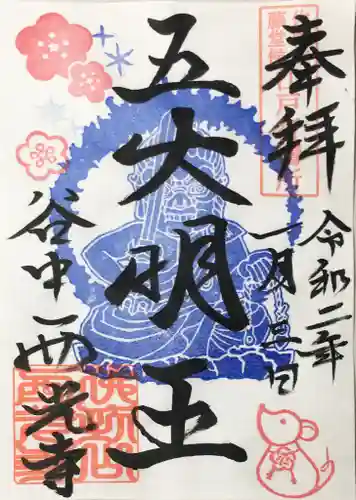 奉拝
令和二年
一月
日
五大明王
谷中 西光寺